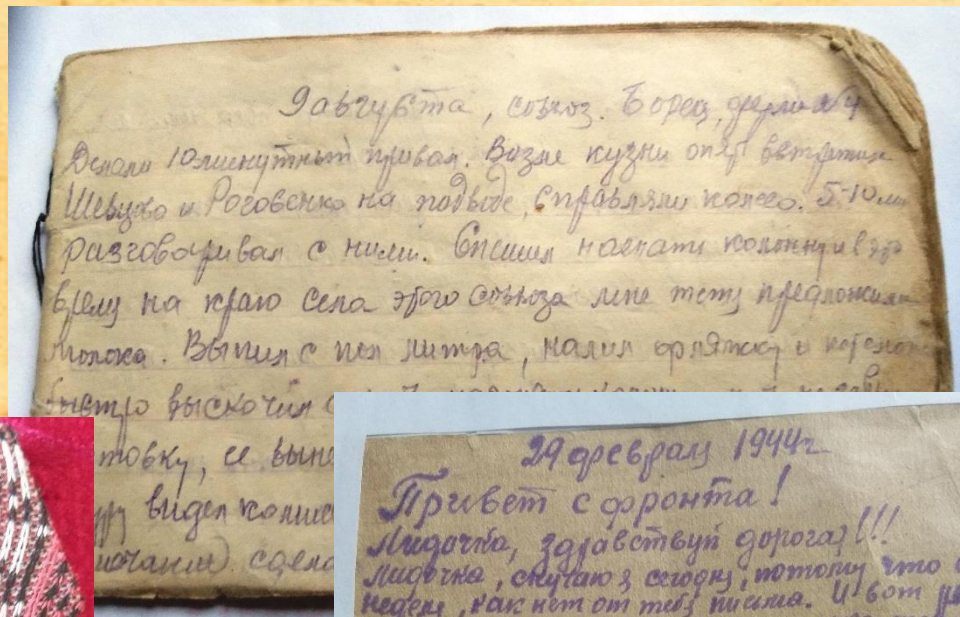 9 августа, совхоз. Борец, ферма №4
Делали 10 минутный привал. Возле кузни опять встретил
Шевцова и Роговенко на подводе, справляли колесо. 5-10
разговаривал с ними. Спешил нагнать колонну и в это
время на краю села этого совхоза мне тети предложили
молока. Выпил с пол литра, налил фляжку и
быстро выскочил
товку, ее
видел
сдела
29 февраля 1944г
Привет с фронта!
Лидочка, здравствуй дорогая!!!
Лидочка, скучаю я сегодня, потому что
неделя, как нет от тебя письма. И вот